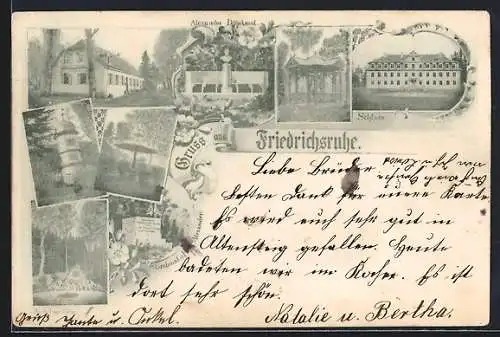 Alexander Denkmal.
Schloss
Gruss aus Friedrichsruhe.
Liebe Brüder
Besten Dank für euere Karte
Es wird euch sehr gut in
Altensteig gefallen. Heute
badeten wir im Kocher. Es ist
dort sehr schön.
Natalie u. Bertha.
Gruß Tante u. Onkel.